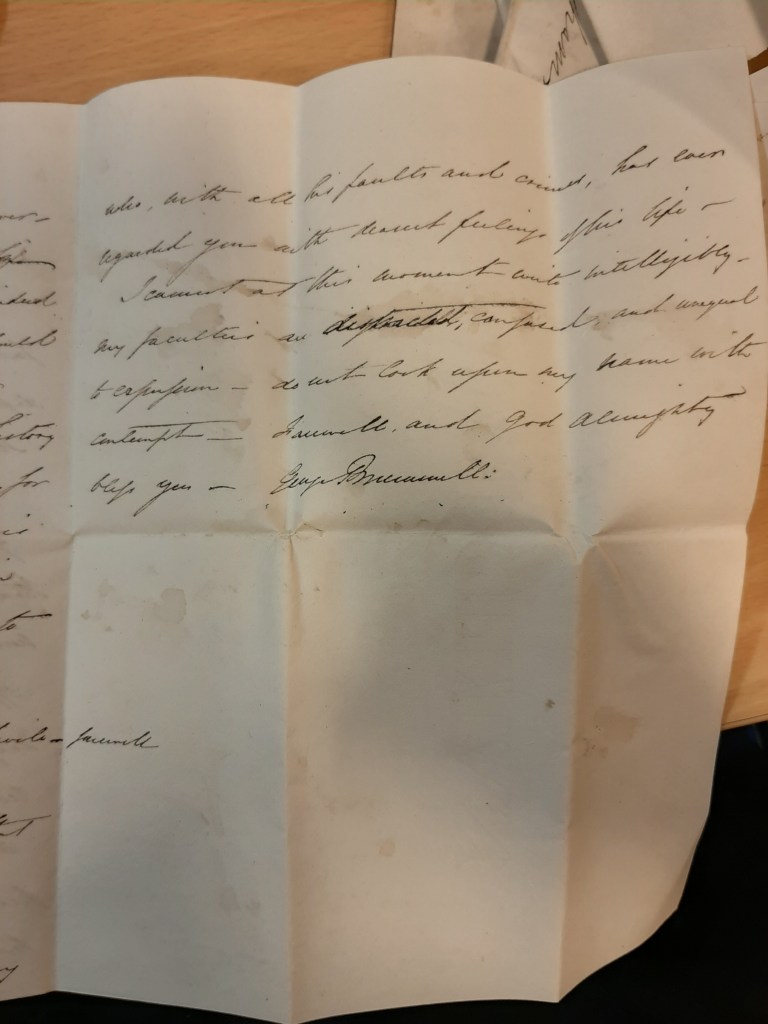 who, with all his faults and crimes, has ever
regarded you with dearest feelings of his life –
I cannot at this moment write intelligibly –
my faculties are distracted, confused, and unequal
to expression – do not look upon my name with
contempt – Farewell, and God Almighty
bless you – George Brummell:
for
to
farewell